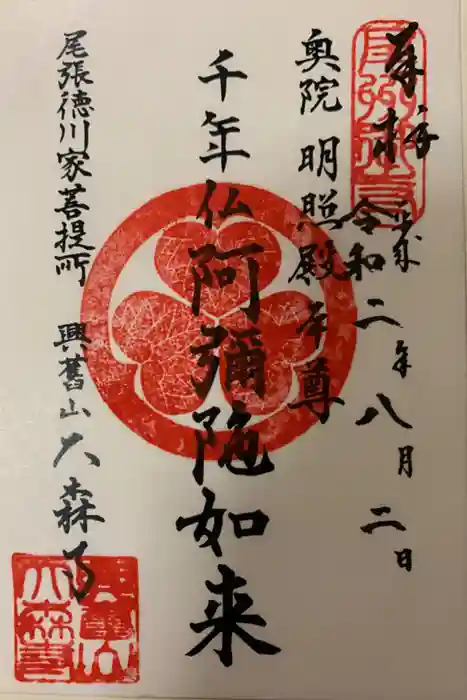 奉拝
令和二年八月二日
奥院 明照殿本尊
千年仏 阿彌陀如来
尾張徳川家菩提所 興舊山 大森寺